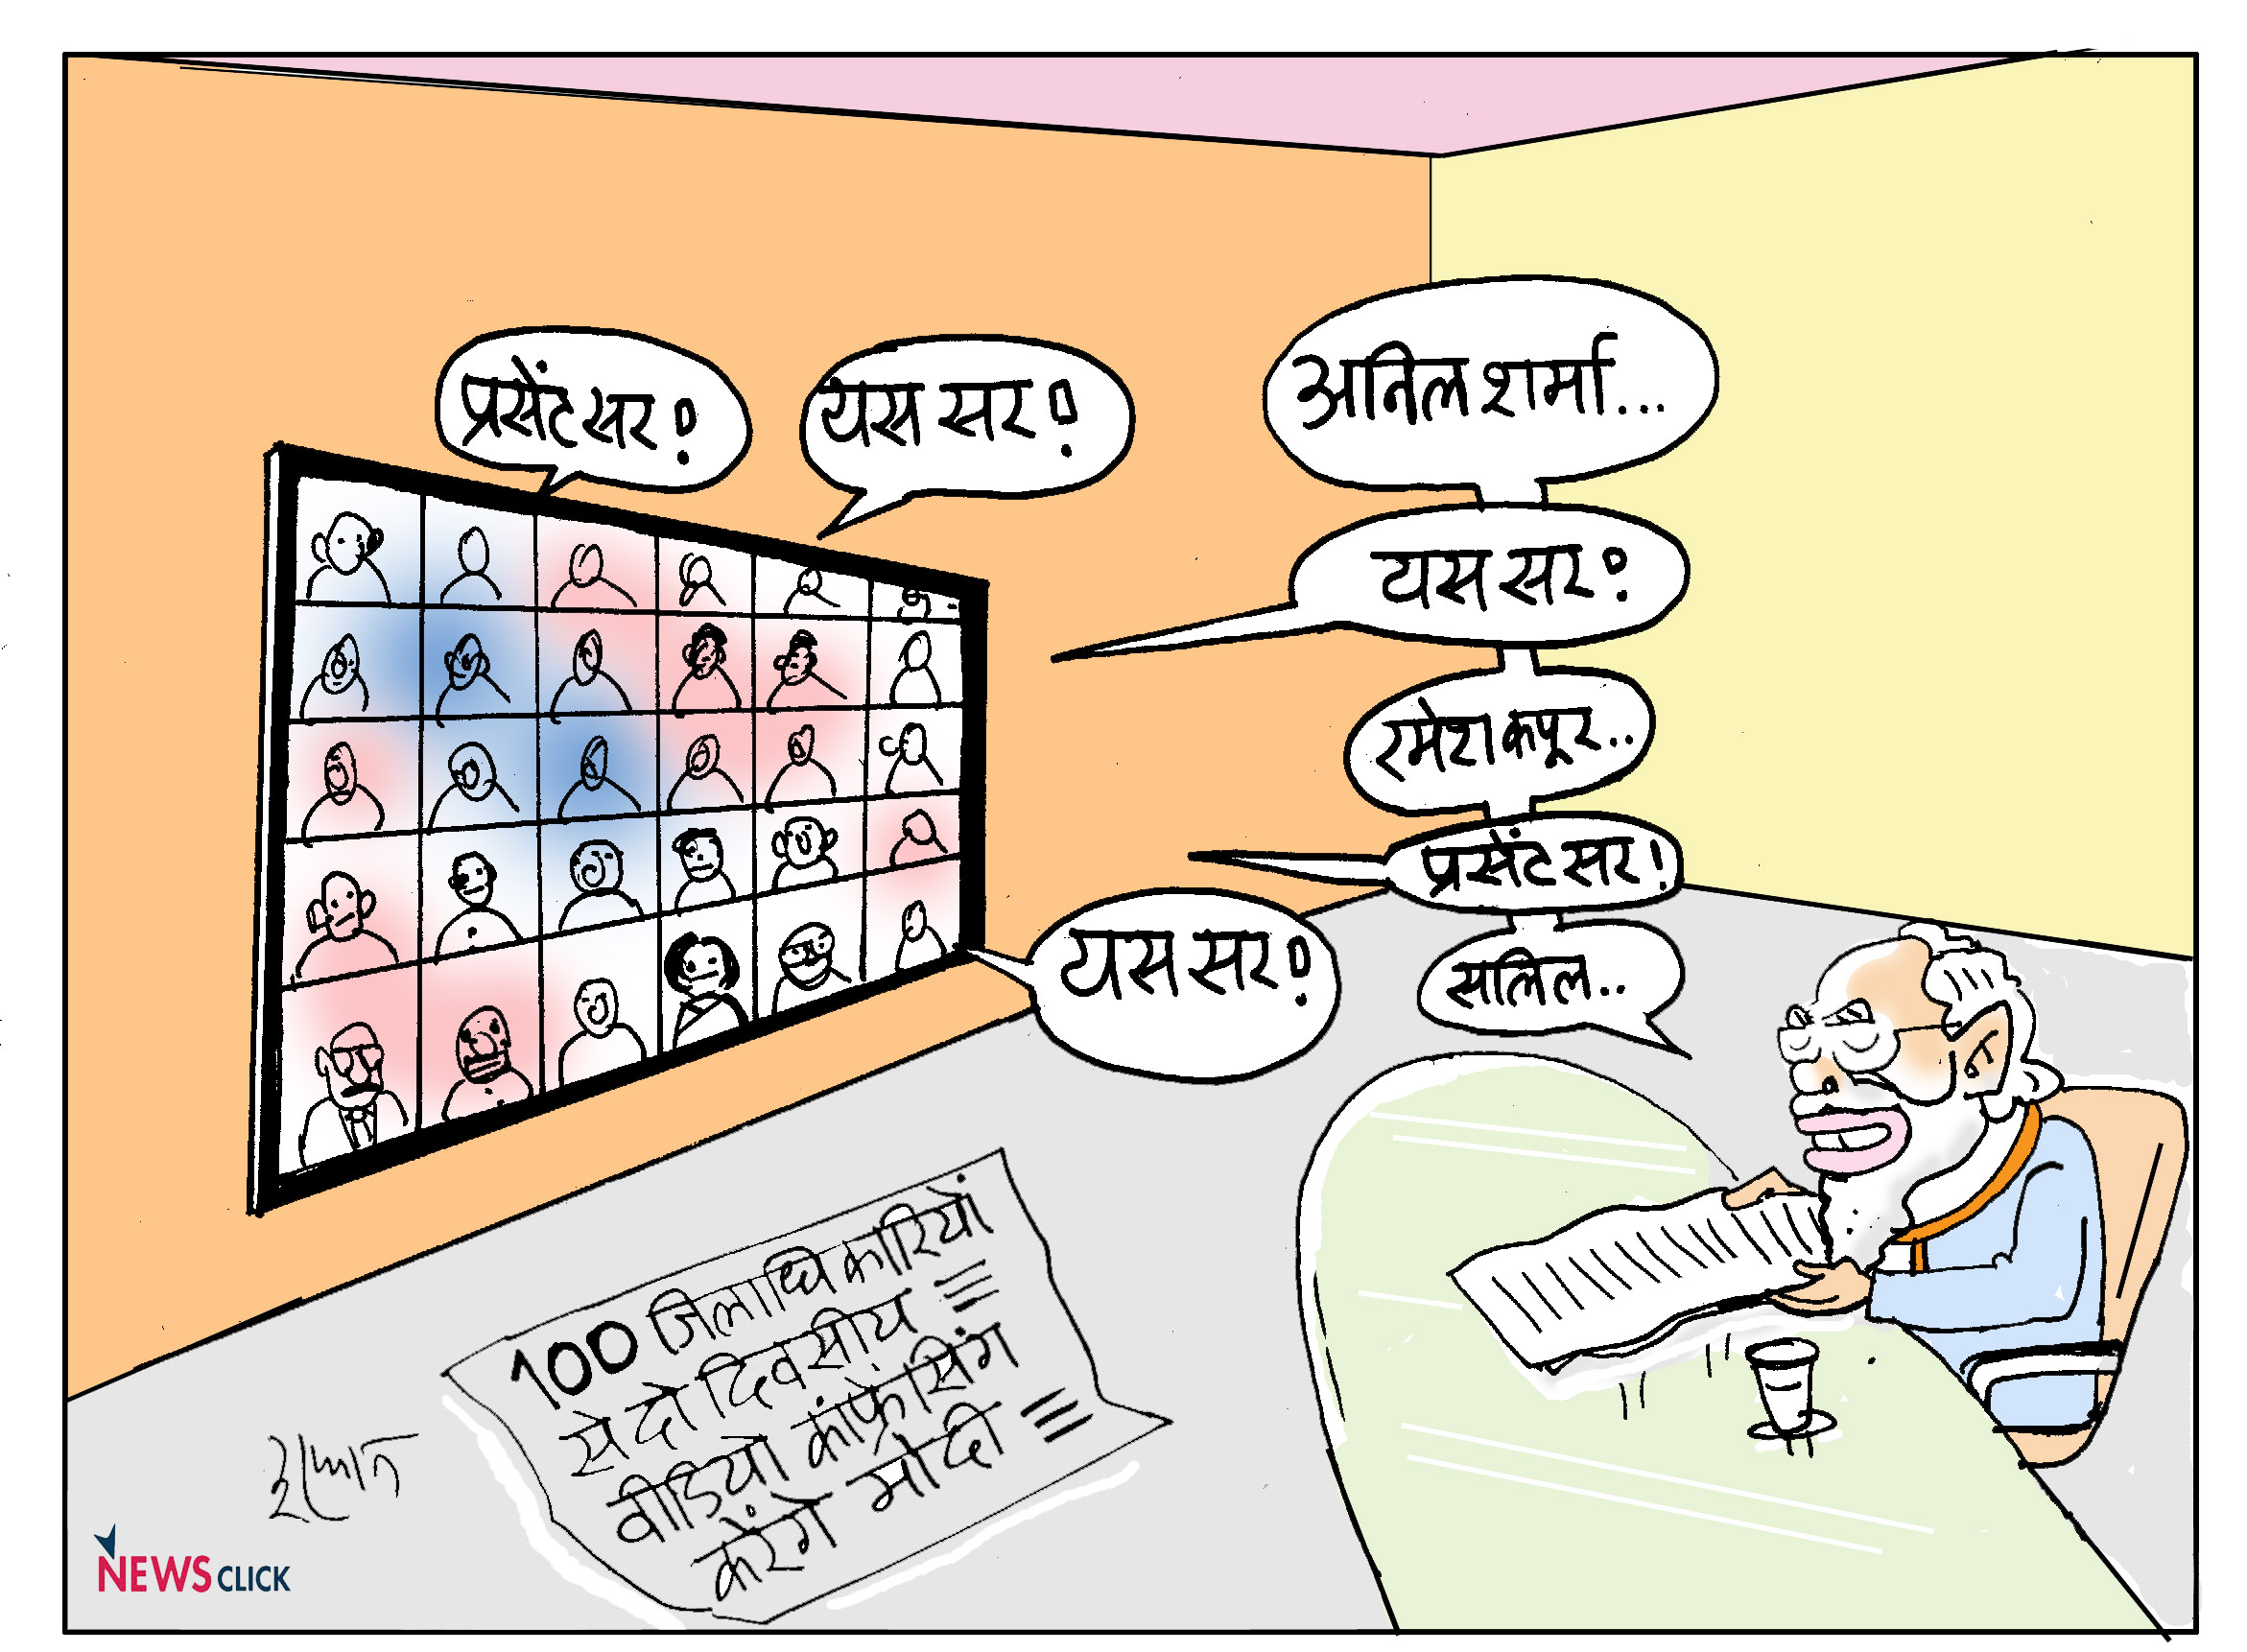 प्रसेंट सर!
यस सर!
अनिल शर्मा...
यस सर!
रमेश कपूर..
प्रसेंट सर!
सलिल..
यस सर!
100 जिलाधिकारियों
से दो दिवसीय
वीडियो कांफ्रेसिंग
करेंगे मोदी
इरफान
NEWSCLICK